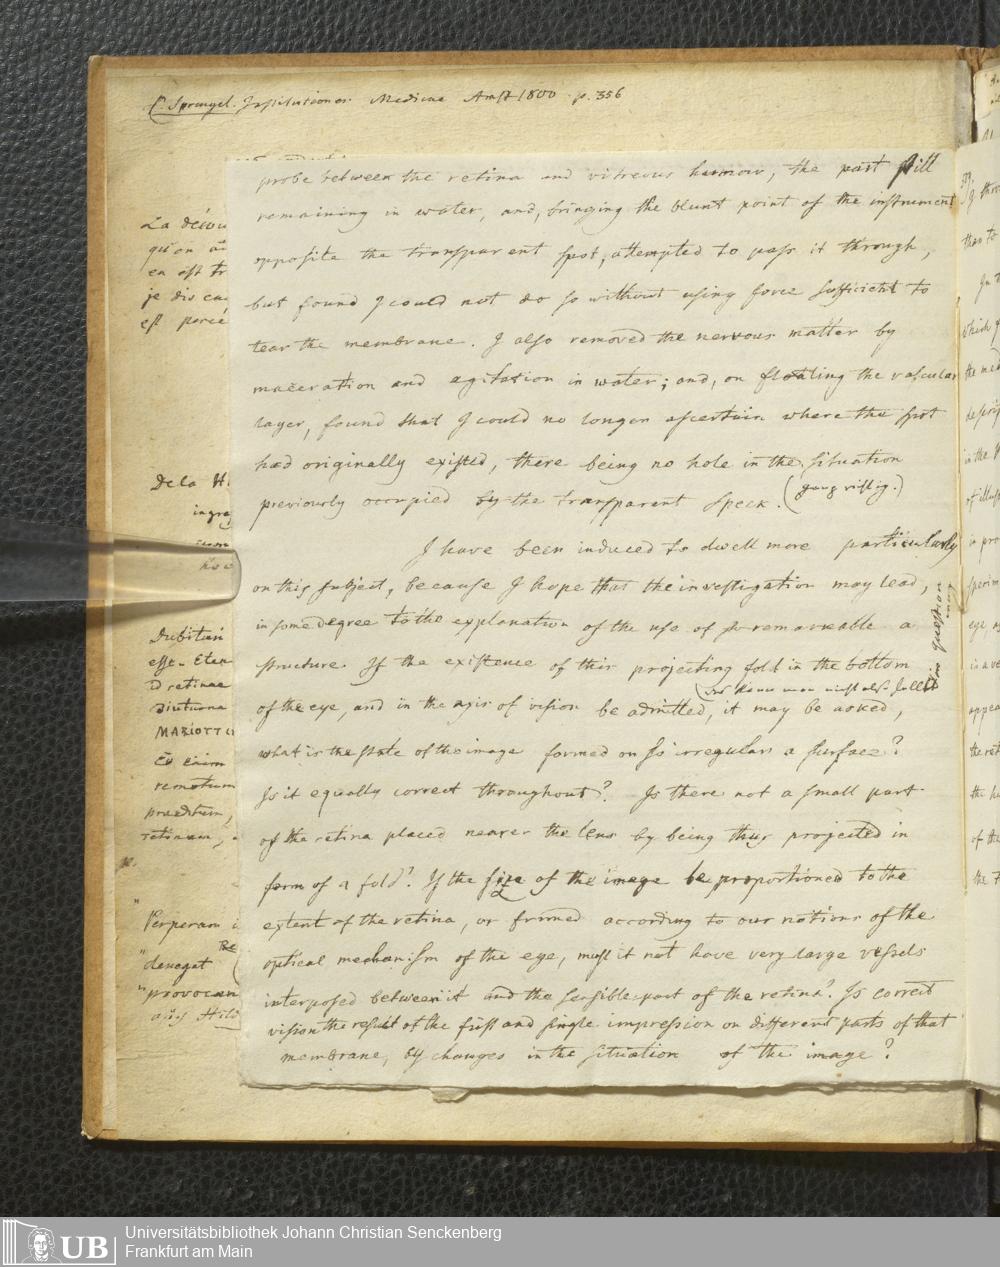 C. Sprengel. Institutiones Medicae Amst 1800 p. 356
probe between the retina and vitreous humour, the part still
remaining in water, and, bringing the blunt point of the instrument
opposite the transparent spot, attempted to pass it through,
but found I could not do so without using force sufficient to
tear the membrane. I also removed the nervous matter by
maceration and agitation in water; and, on floating the vascular
layer, found that I could no longer ascertain where the spot
had originally existed, there being no hole in the situation
previously occupied by the transparent speck. (ganz richtig.)
I have been induced to dwell more particularly
on this subject, because I hope that the investigation may lead,
in some degree to the explanation of the use of so remarkable a
structure. If the existence of this projecting fold in the bottom
of the eye, and in the axis of vision be admitted, it may be asked,
what is the state of the image formed on so irregular a surface?
Is it equally correct throughout? Is there not a small part
of the retina placed nearer the lens by being thus projected in
form of a fold? If the size of the image be proportioned to the
extent of the retina, or formed according to our notions of the
optical mechanism of the eye, must it not have very large vessels
interposed between it and the sensible part of the retina? Is correct
vision the result of the first and single impression on different parts of that
membrane, by changes in the situation of the image?
qu'on
en est
je dis
est percé
De la H
Dubitari
esse.
retinae
MARIOTT
Eo enim
remotum
praeditum,
retinam,
"Perperam
"denegat
"provocan
UB
Universitätsbibliothek Johann Christian Senckenberg
Frankfurt am Main